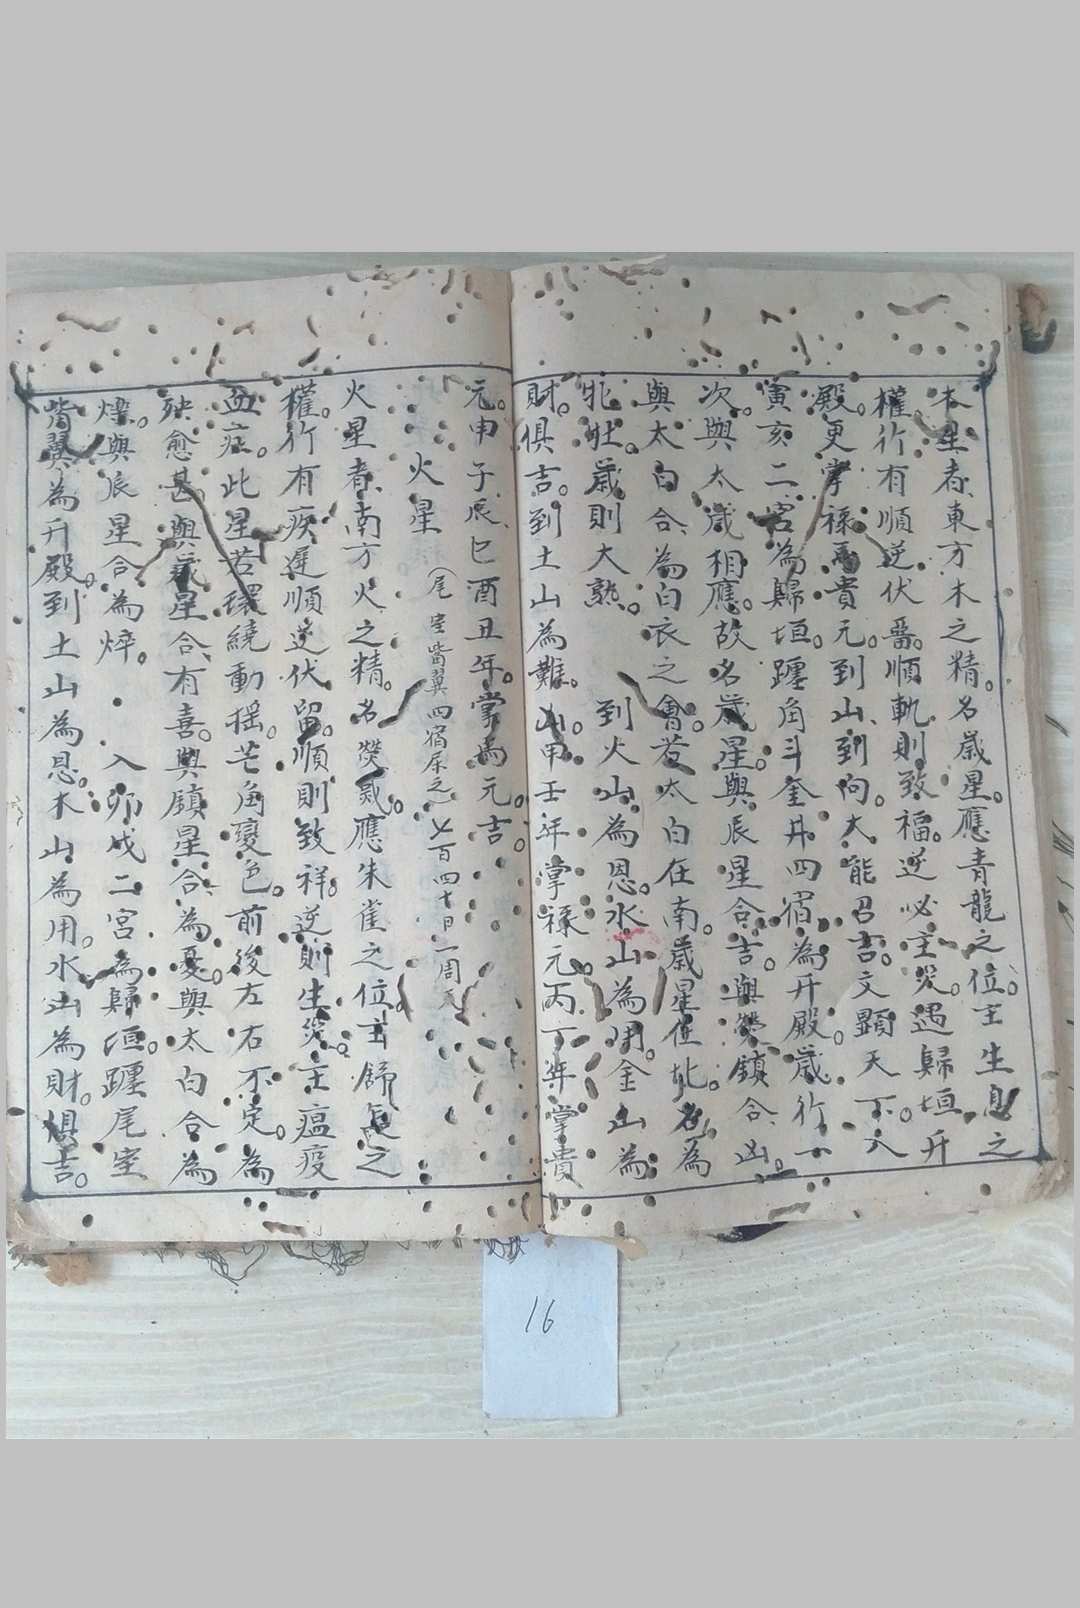 木星者東方木之精。名歲星。應青龍之位。主生息之
權。行有順逆伏留。順軌則致福。逆必主災。遇歸垣升
殿。更掌祿馬貴元。到山到向。大能召吉。文顯天下。入
寅亥二宮為歸垣。躔角斗奎井四宿為升殿。歲行一
次。與太歲相應。故名歲星。與辰星合吉。與熒鎮合凶。
與太白合為白衣之會。若太白在南。歲星在北。名為
牝牡。歲則大熟。 到火山為恩。水山為用。金山為
財。俱吉。到土山為難。凶。甲壬年掌祿元。丙丁年掌貴
元。申子辰巳酉丑年。掌馬元。吉。
火星 (尾室觜翼四宿屬之)七百四十日一周天
火星者南方火之精。名熒惑。應朱雀之位。主舒急之
權。行有疾遲順逆伏留。順則致祥。逆則生災。主瘟疫
血症。此星若環繞動搖。芒角變色。前後左右不定。為
殃愈甚。與歲星合有喜。與鎮星合為憂。與太白合為
爍。與辰星合為焠。入卯戌二宮為歸垣。躔尾室
觜翼為升殿。到土山為恩。木山為用。水山為財。俱吉。
16